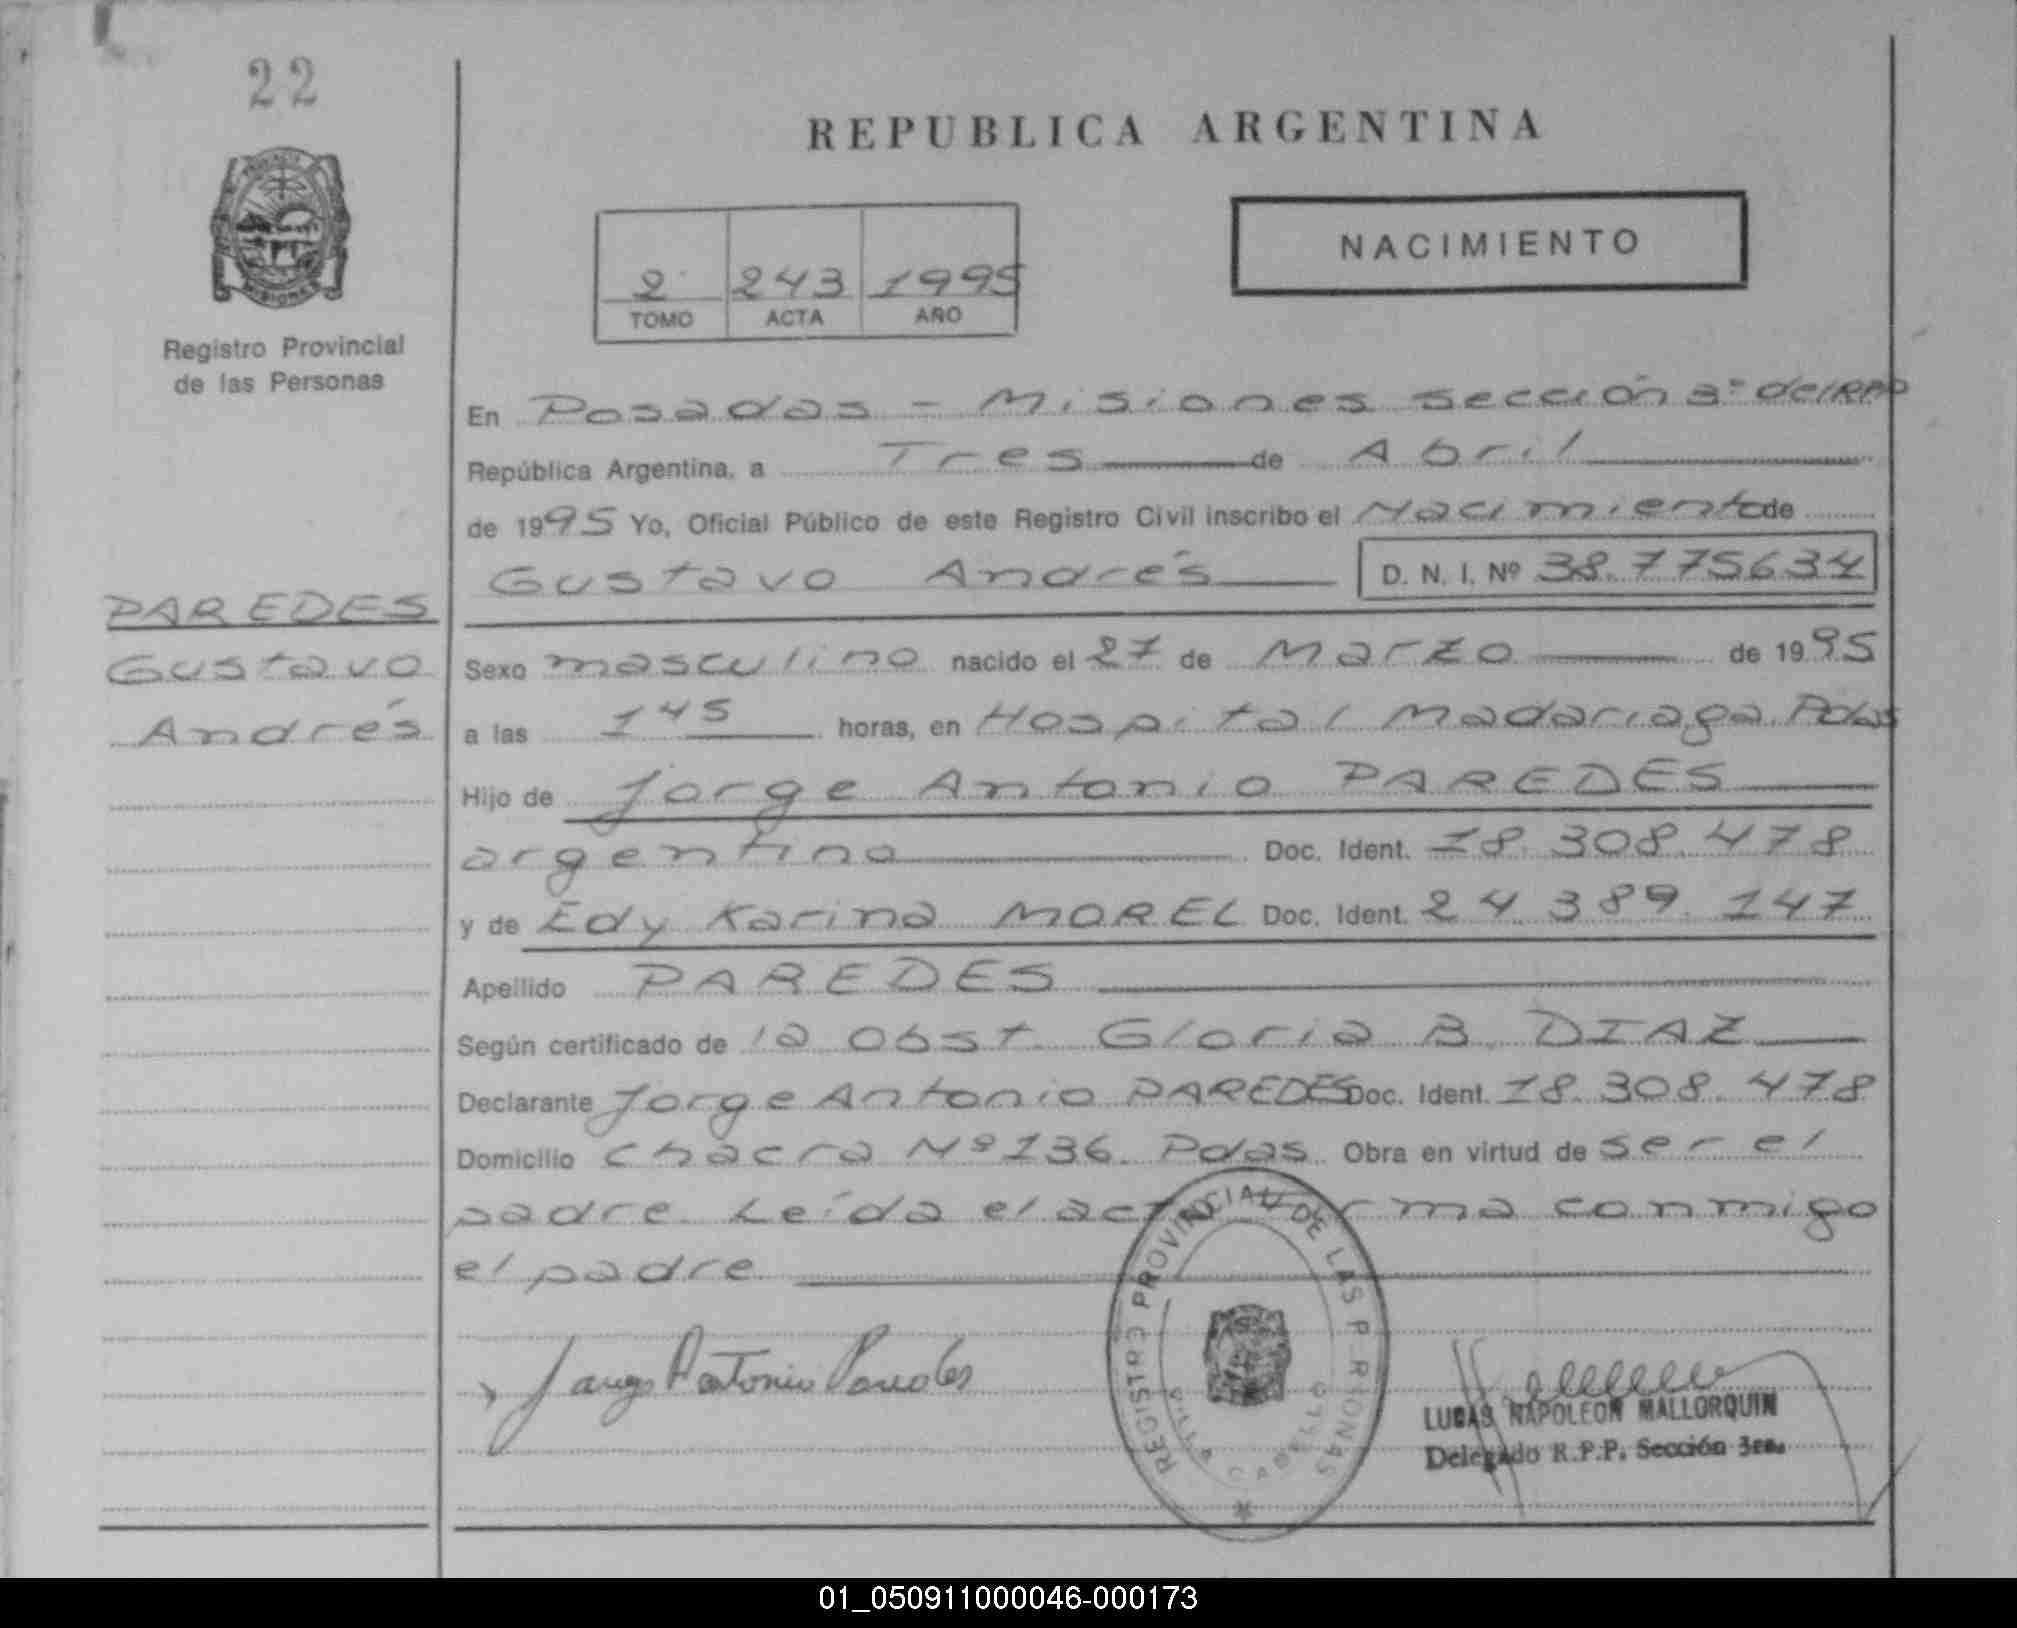 22
REPUBLICA ARGENTINA
NACIMIENTO
2 243 1995
TOMO ACTA AÑO
MISIONES
Registro Provincial
de las Personas
En Posadas - Misiones sección 3º del RPP
República Argentina, a Tres de Abril
de 1995 Yo, Oficial Público de este Registro Civil inscribo el Nacimiento de
Gustavo Andrés D. N. I. Nº 38.775634
PAREDES
Gustavo
Andrés
Sexo masculino nacido el 27 de Marzo de 1995
a las 1 45 horas, en Hospital Madariaga. Pdas
Hijo de Jorge Antonio PAREDES
argentino Doc. Ident. 18.308.478
y de Edy Karina MOREL Doc. Ident. 24.389.147
Apellido PAREDES
Según certificado de la Obst. Gloria B. DIAZ
Declarante Jorge Antonio PAREDES Doc. Ident. 18.308.478
Domicilio chacra Nº 136. Pdas. Obra en virtud de ser el
padre. Leída el acta firma conmigo
el padre
Jorge Antonio Paredes
REGISTRO PROVINCIAL DE LAS PERSONAS
VILLA CABELLO
LUCAS NAPOLEON MALLORQUIN
Delegado R.P.P. Sección 3ra.
01_050911000046-000173